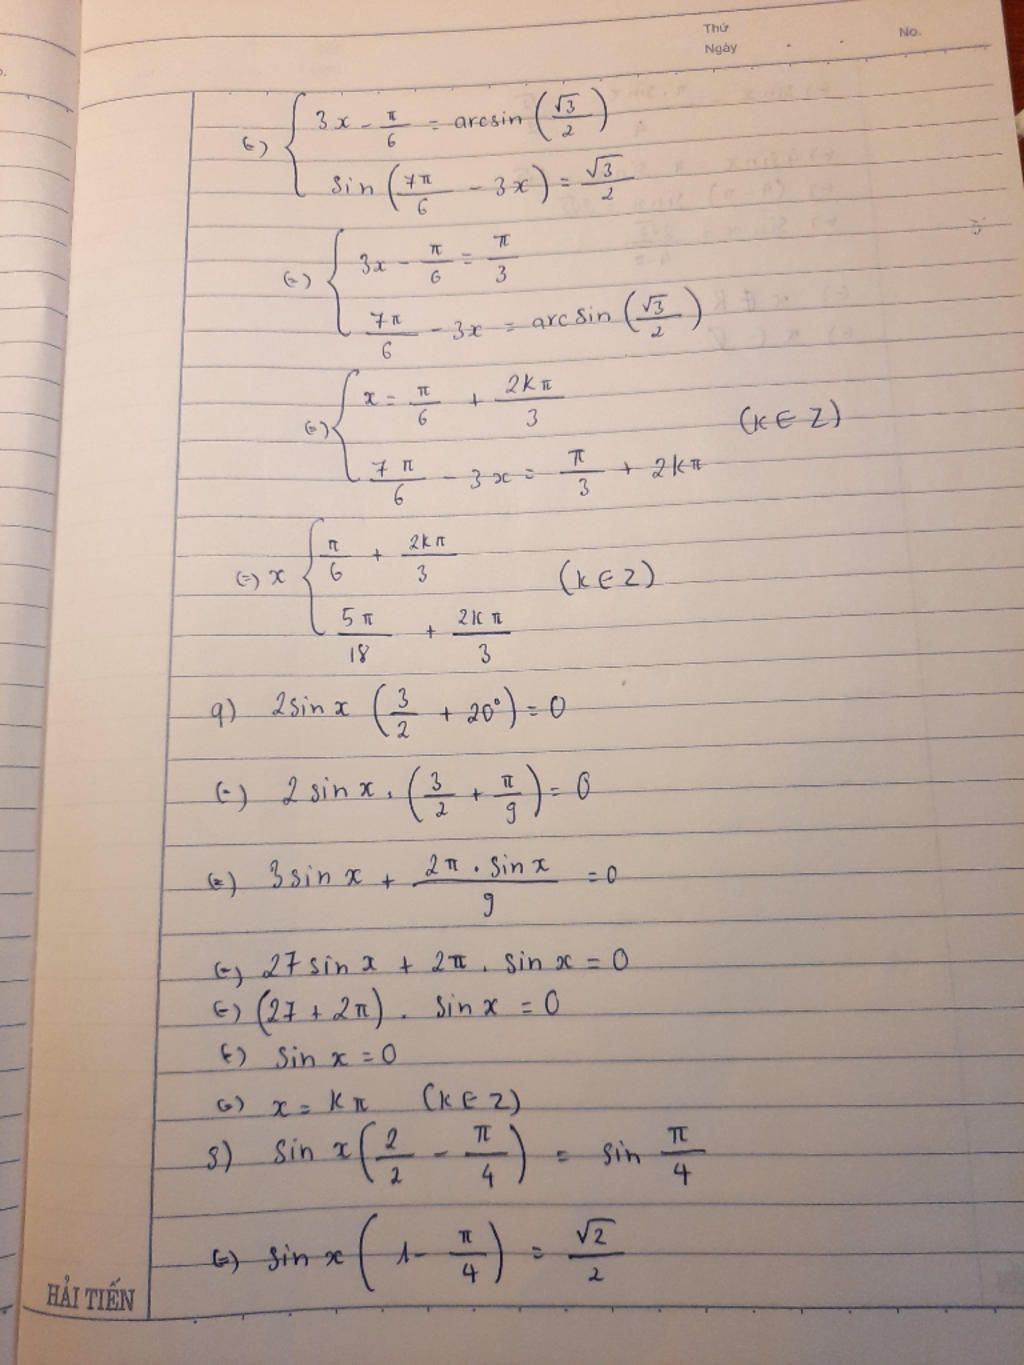 Thứ
Ngày
No.
⇔ { 3x - π/6 = arcsin (√3/2)
sin (7π/6 - 3x) = √3/2
⇔ { 3x - π/6 = π/3
7π/6 - 3x = arcsin (√3/2)
⇔ { x = π/6 + 2kπ/3
(k ∈ Z)
7π/6 - 3x = π/3 + 2kπ
⇔ x { π/6 + 2kπ/3
(k ∈ Z)
5π/18 + 2kπ/3
q) 2sin x (3/2 + 20°) = 0
⇔ 2 sin x . (3/2 + π/9) = 0
⇔ 3 sin x + 2π . sin x / 9 = 0
⇔ 27 sin x + 2π . sin x = 0
⇔ (27 + 2π) . sin x = 0
⇔ sin x = 0
⇔ x = kπ (k ∈ Z)
s) sin x (2/2 - π/4) = sin π/4
⇔ sin x (1 - π/4) = √2/2
HẢI TIẾN